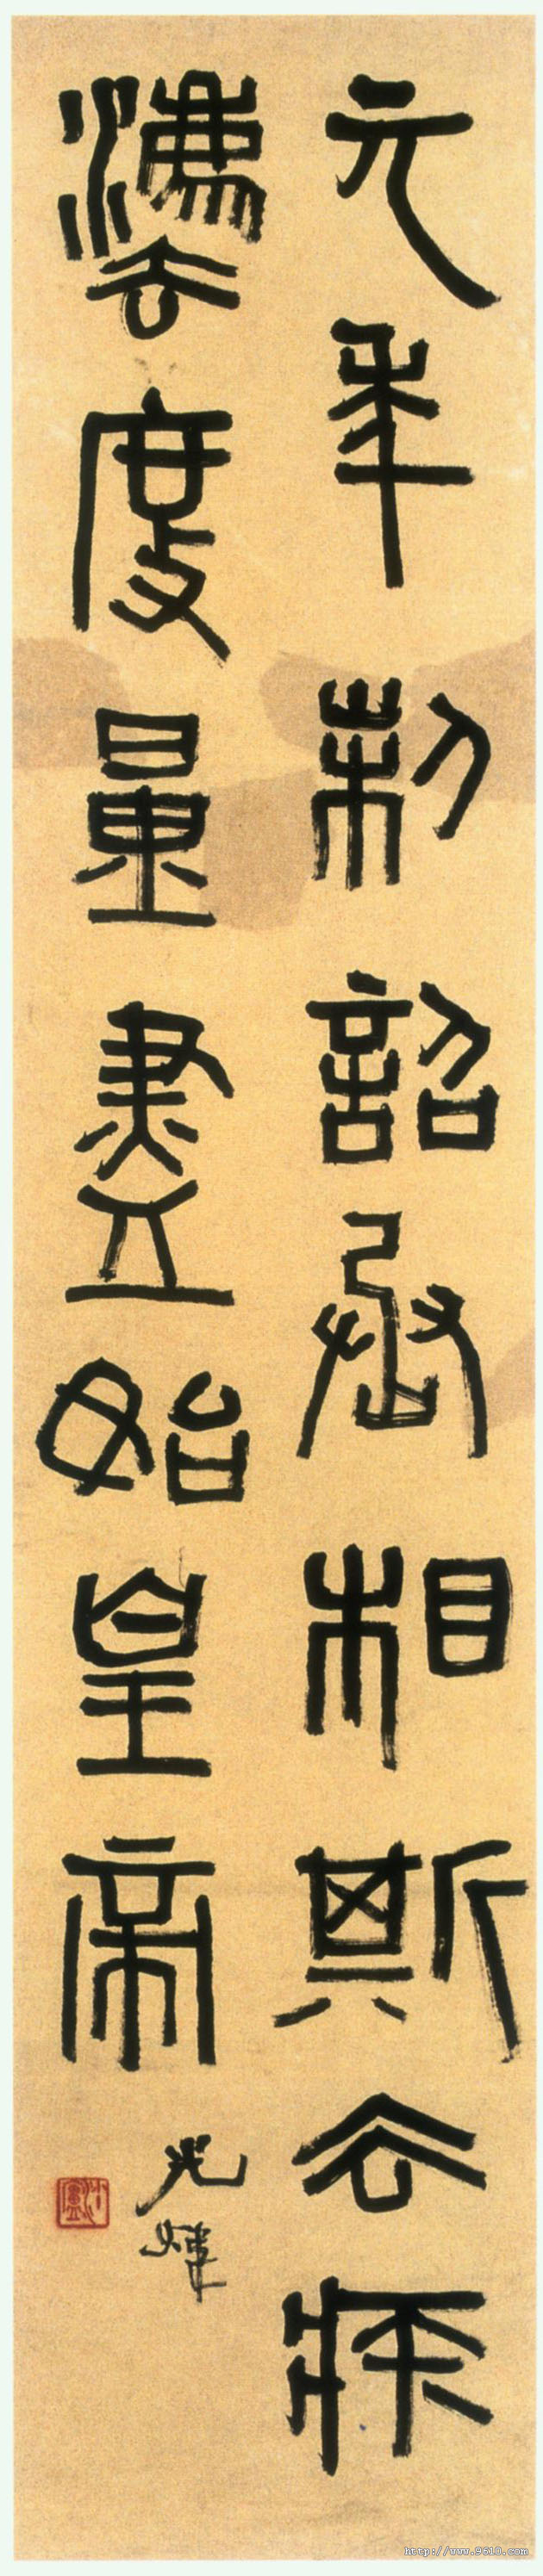 元年制詔丞相斯去疾
灋度量盡始皇帝
光煒
http://www.9610.com